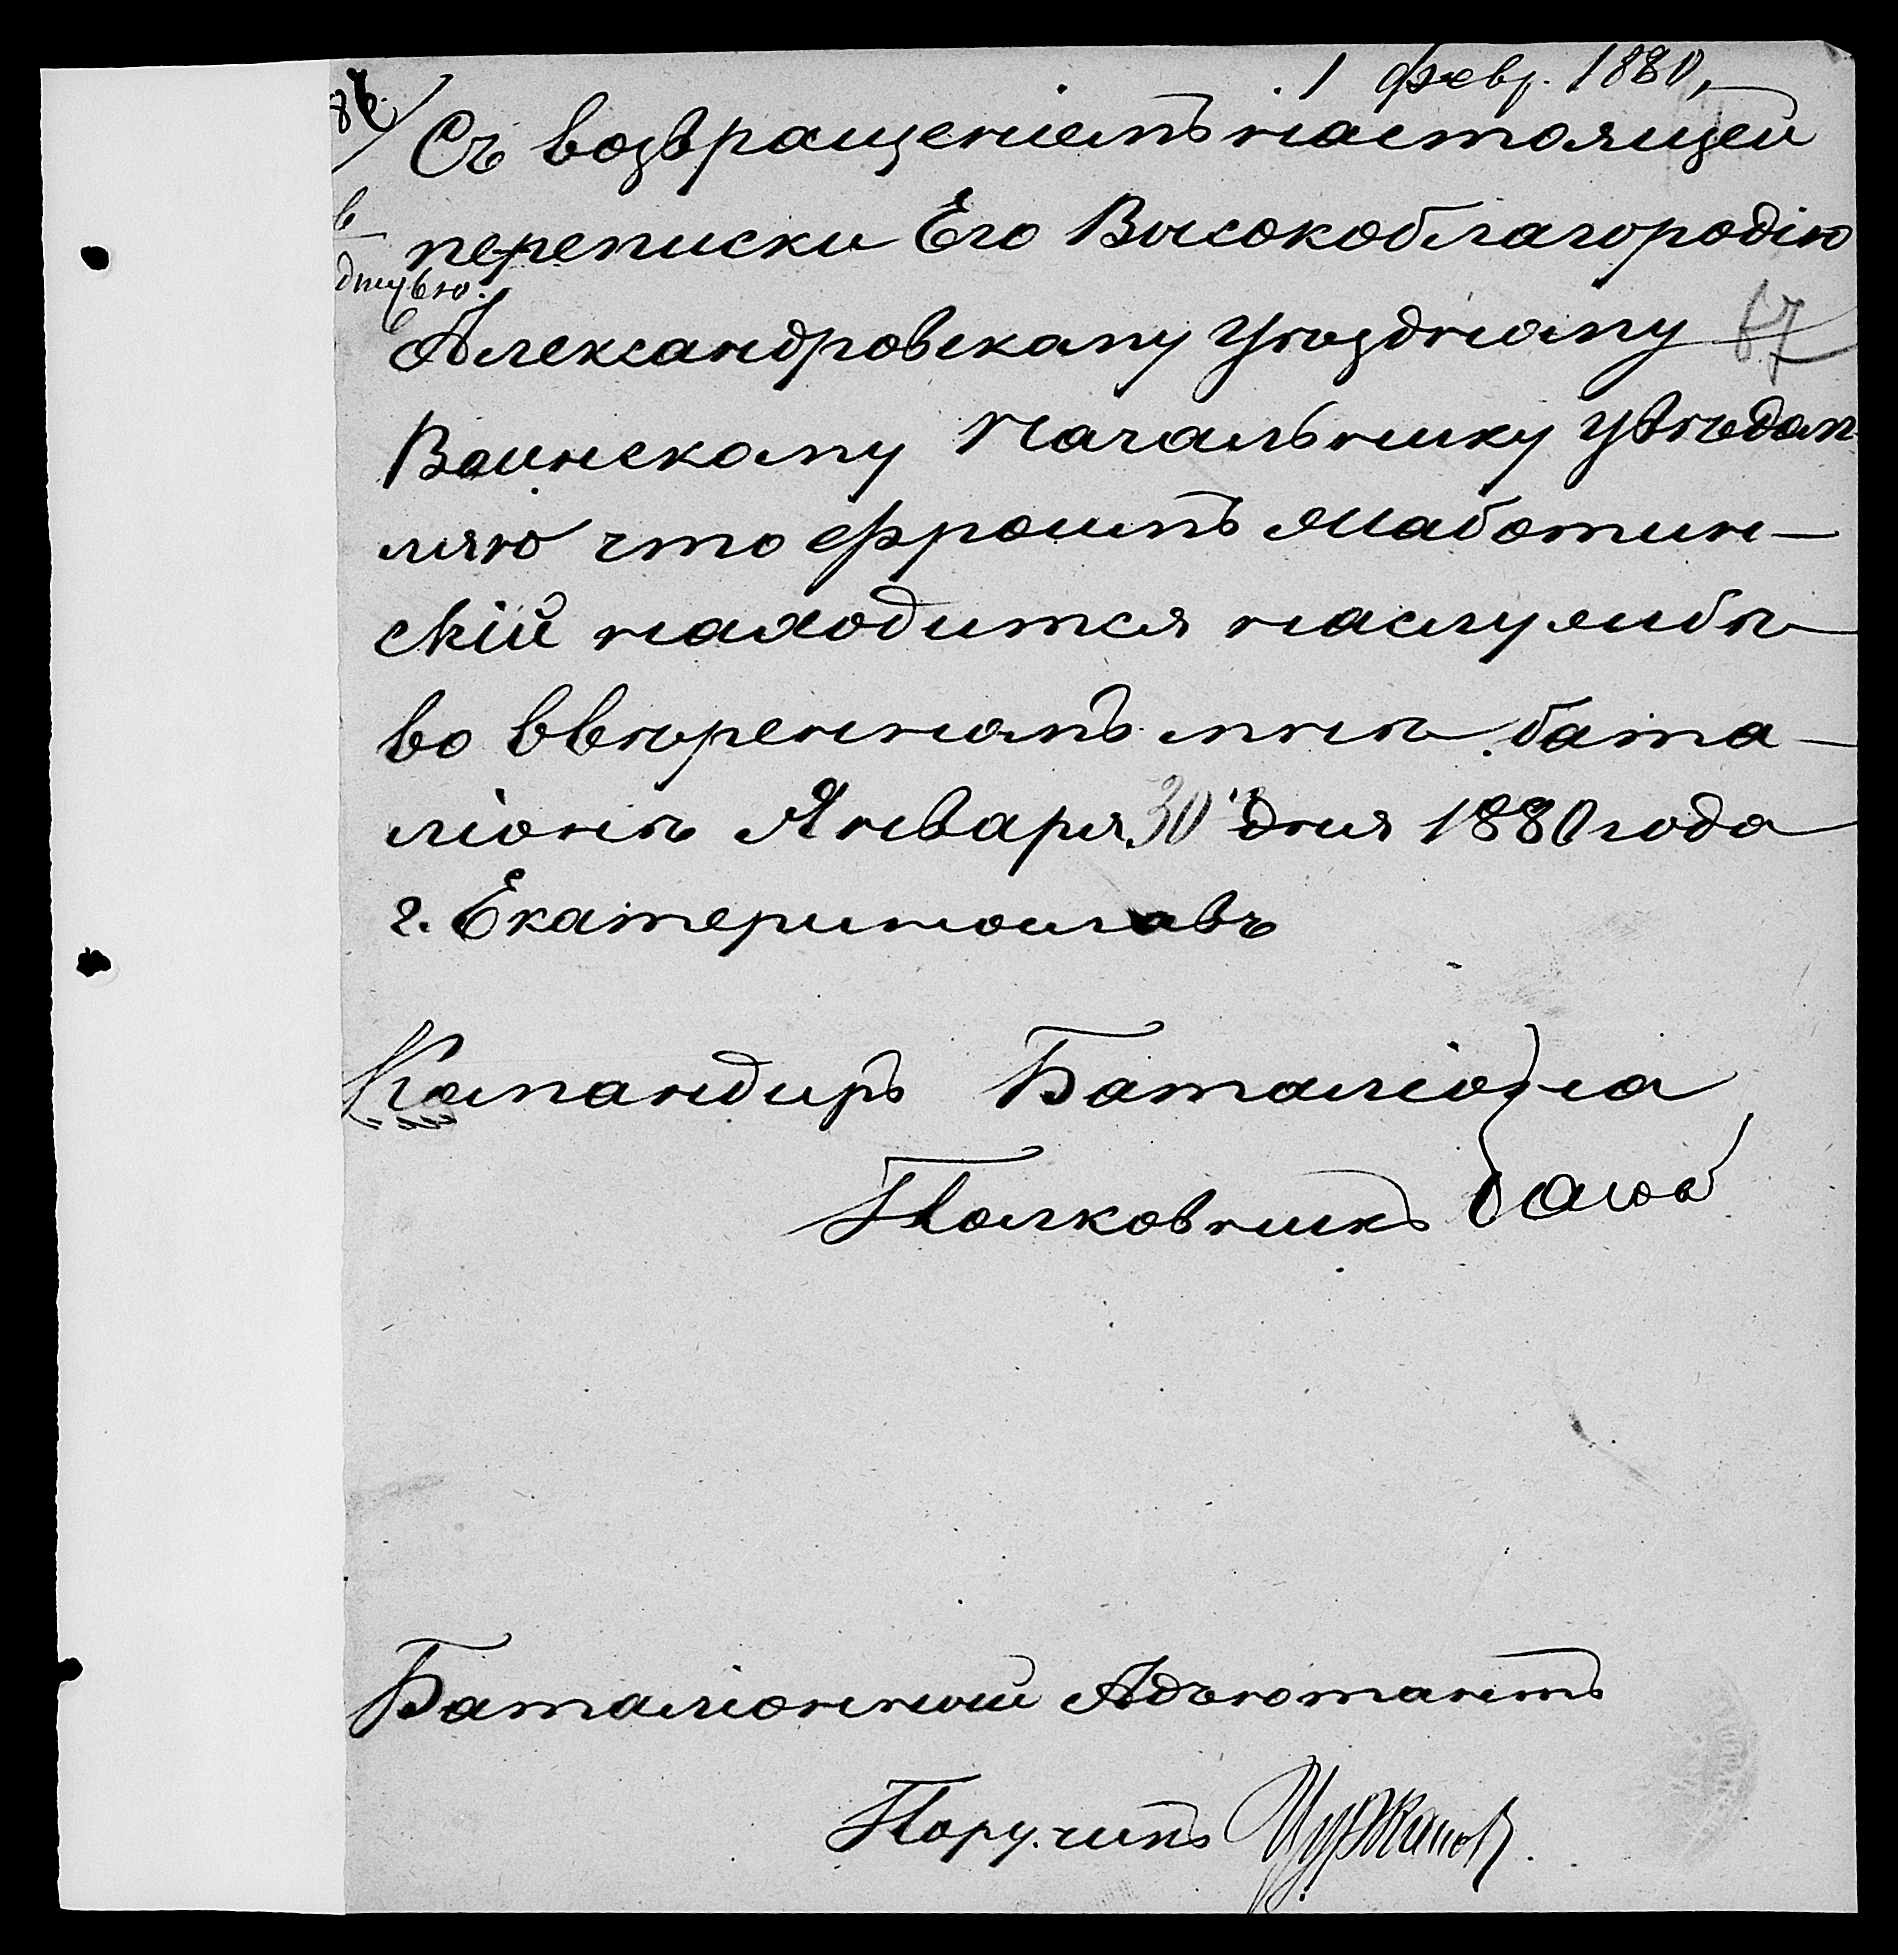 1 февр. 1880,
Съ возвращеніемъ настоящей
переписки Его Высокоблагородію
Александровскому Уѣздному 67
Воинскому Начальнику увѣдом
ляю что Ефроимъ Маботин-
скій находится наслужбѣ
во ввѣренномъ мнѣ бата-
ліонѣ Января 30 дня 1880 года
г. Екатеринославъ
Командиръ Баталіона
Полковникъ
Баталіонный Адъютантъ
Поручикъ